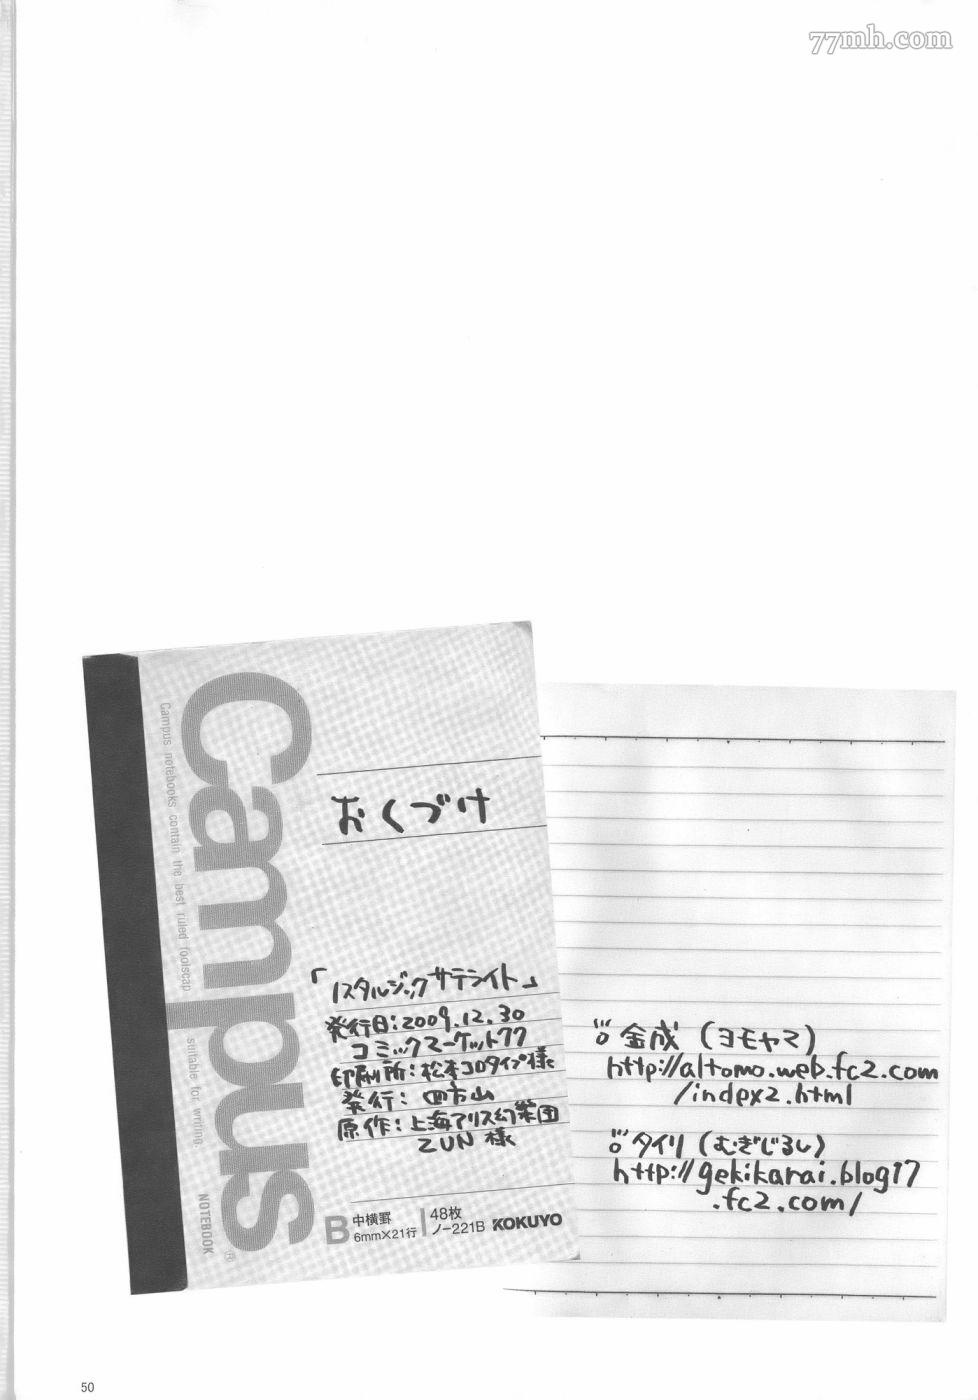 77mh.com
Campus
Campus notebooks contain the best ruled foolscap suitable for writing
NOTEBOOK
おくづけ
「ノスタルジックサテライト」
発行日:2009.12.30
コミックマーケット77
印刷所:松本コロタイプ様
発行:四方山
原作:上海アリス幻楽団
ZUN様
B 中横罫
6mm×21行
48枚
ノ-221B
KOKUYO
金成(ヨモヤマ)
http://altomo.web.fc2.com
/index2.html
タイリ(むぎじるし)
http://gekikarai.blog17
.fc2.com/
50